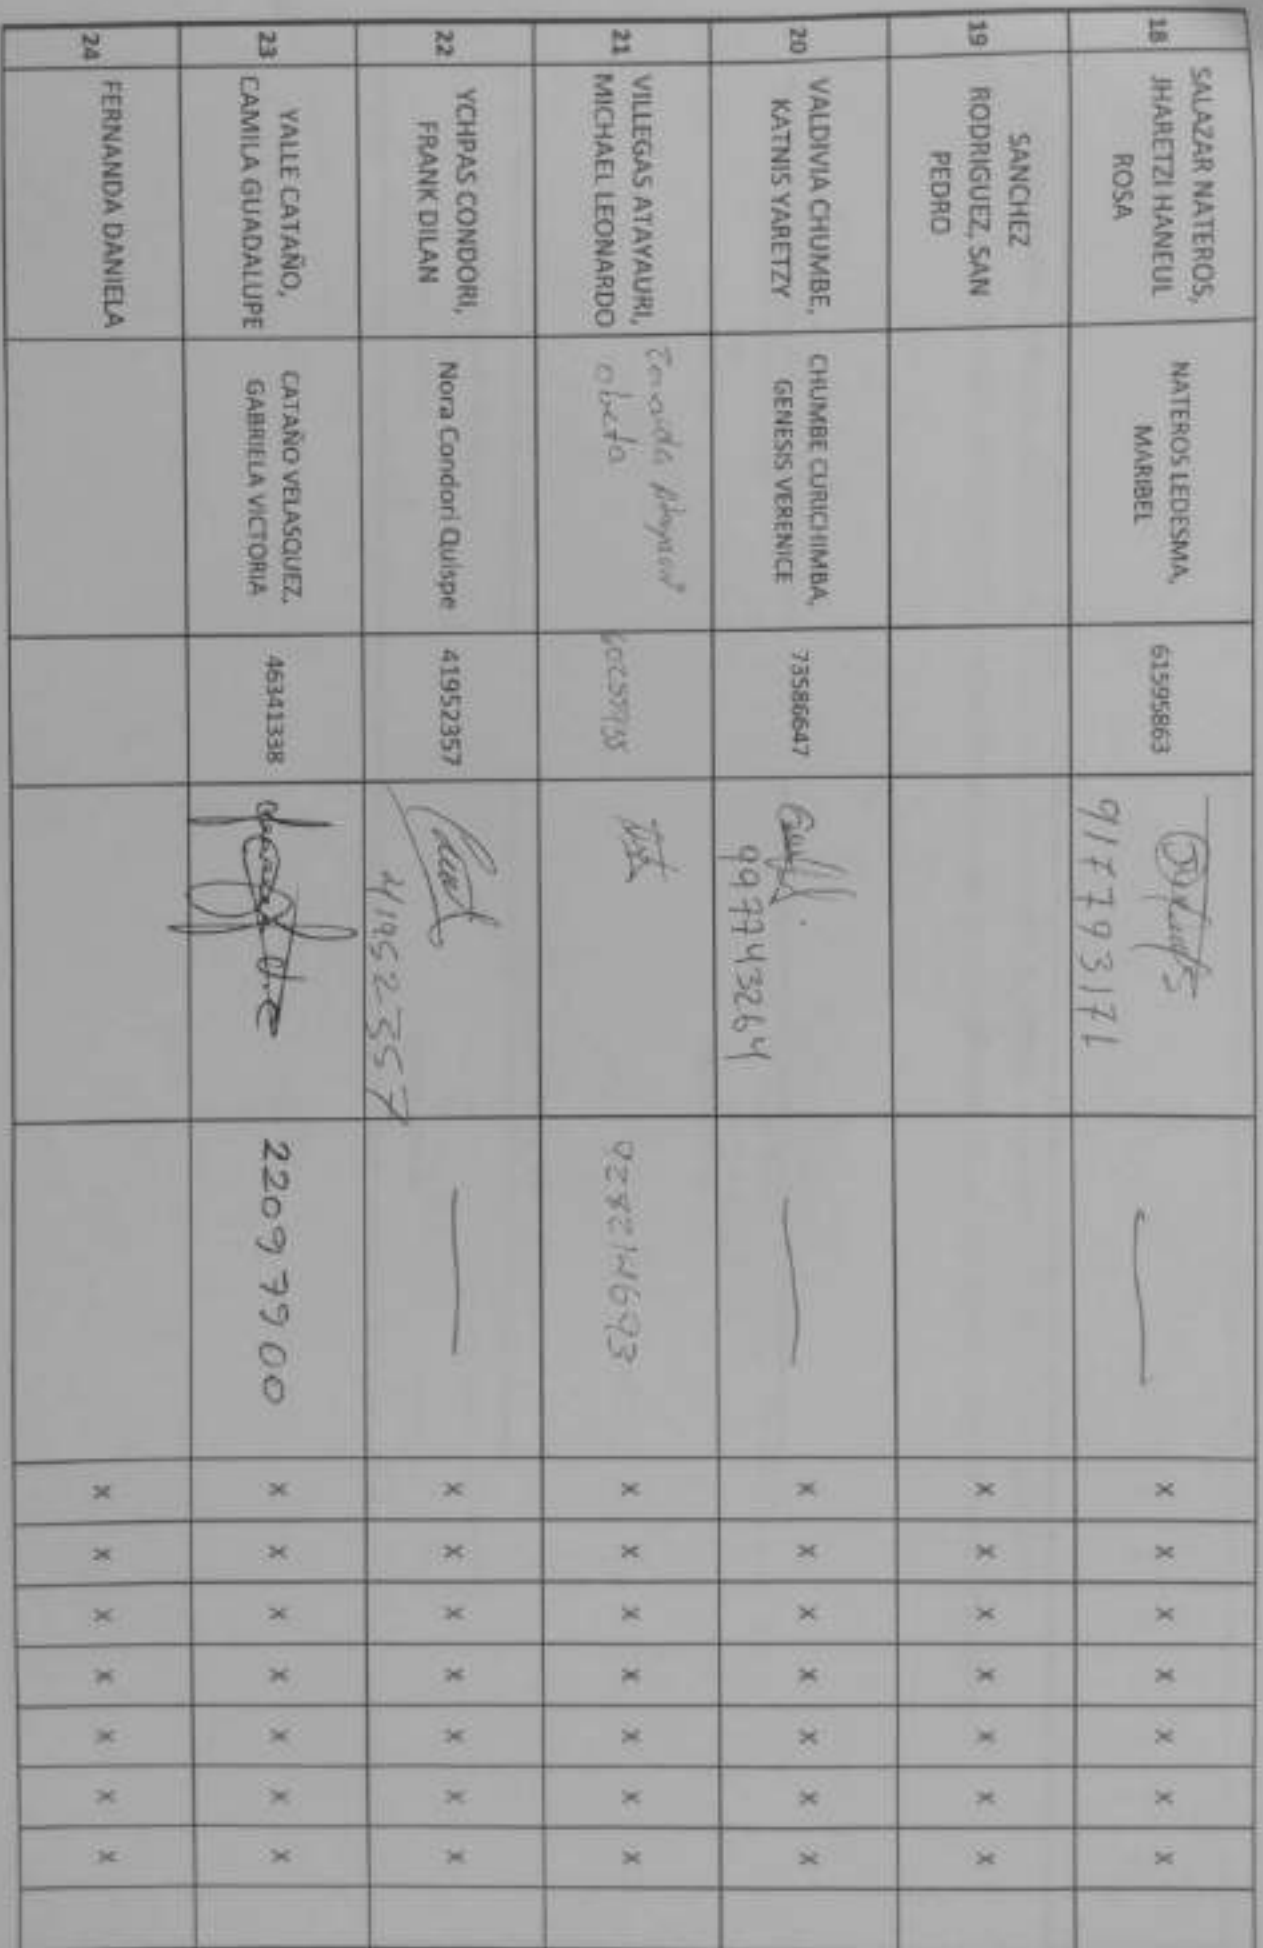 18
SALAZAR NATEROS,
JHARETZI HANEUL
ROSA
NATEROS LEDESMA,
MARIBEL
61595863
917793171
X X X X X X X
19
SANCHEZ
RODRIGUEZ, SAN
PEDRO
X X X X X X X
20
VALDIVIA CHUMBE,
KATNIS YARETZY
CHUMBE CURICHIMBA,
GENESIS VERENICE
73586647
997743264
X X X X X X X
21
VILLEGAS ATAYAURI,
MICHAEL LEONARDO
928214693
X X X X X X X
22
YCHPAS CONDORI,
FRANK DILAN
Nora Condori Quispe
41952357
41952357
X X X X X X X
23
YALLE CATAÑO,
CAMILA GUADALUPE
CATAÑO VELASQUEZ,
GABRIELA VICTORIA
46341338
22097900
X X X X X X X
24
FERNANDA DANIELA
X X X X X X X